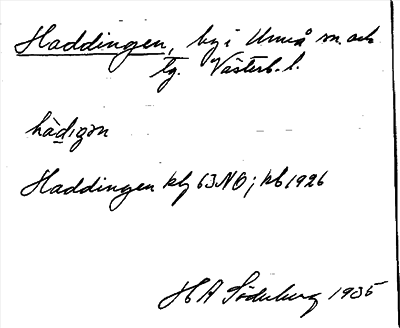 Haddingen, by i Umeå sn och
tg. Västerb. l.
hàd̲ıŋən
Haddingen kbl 63NO; kb 1926
H A Söderberg 1935